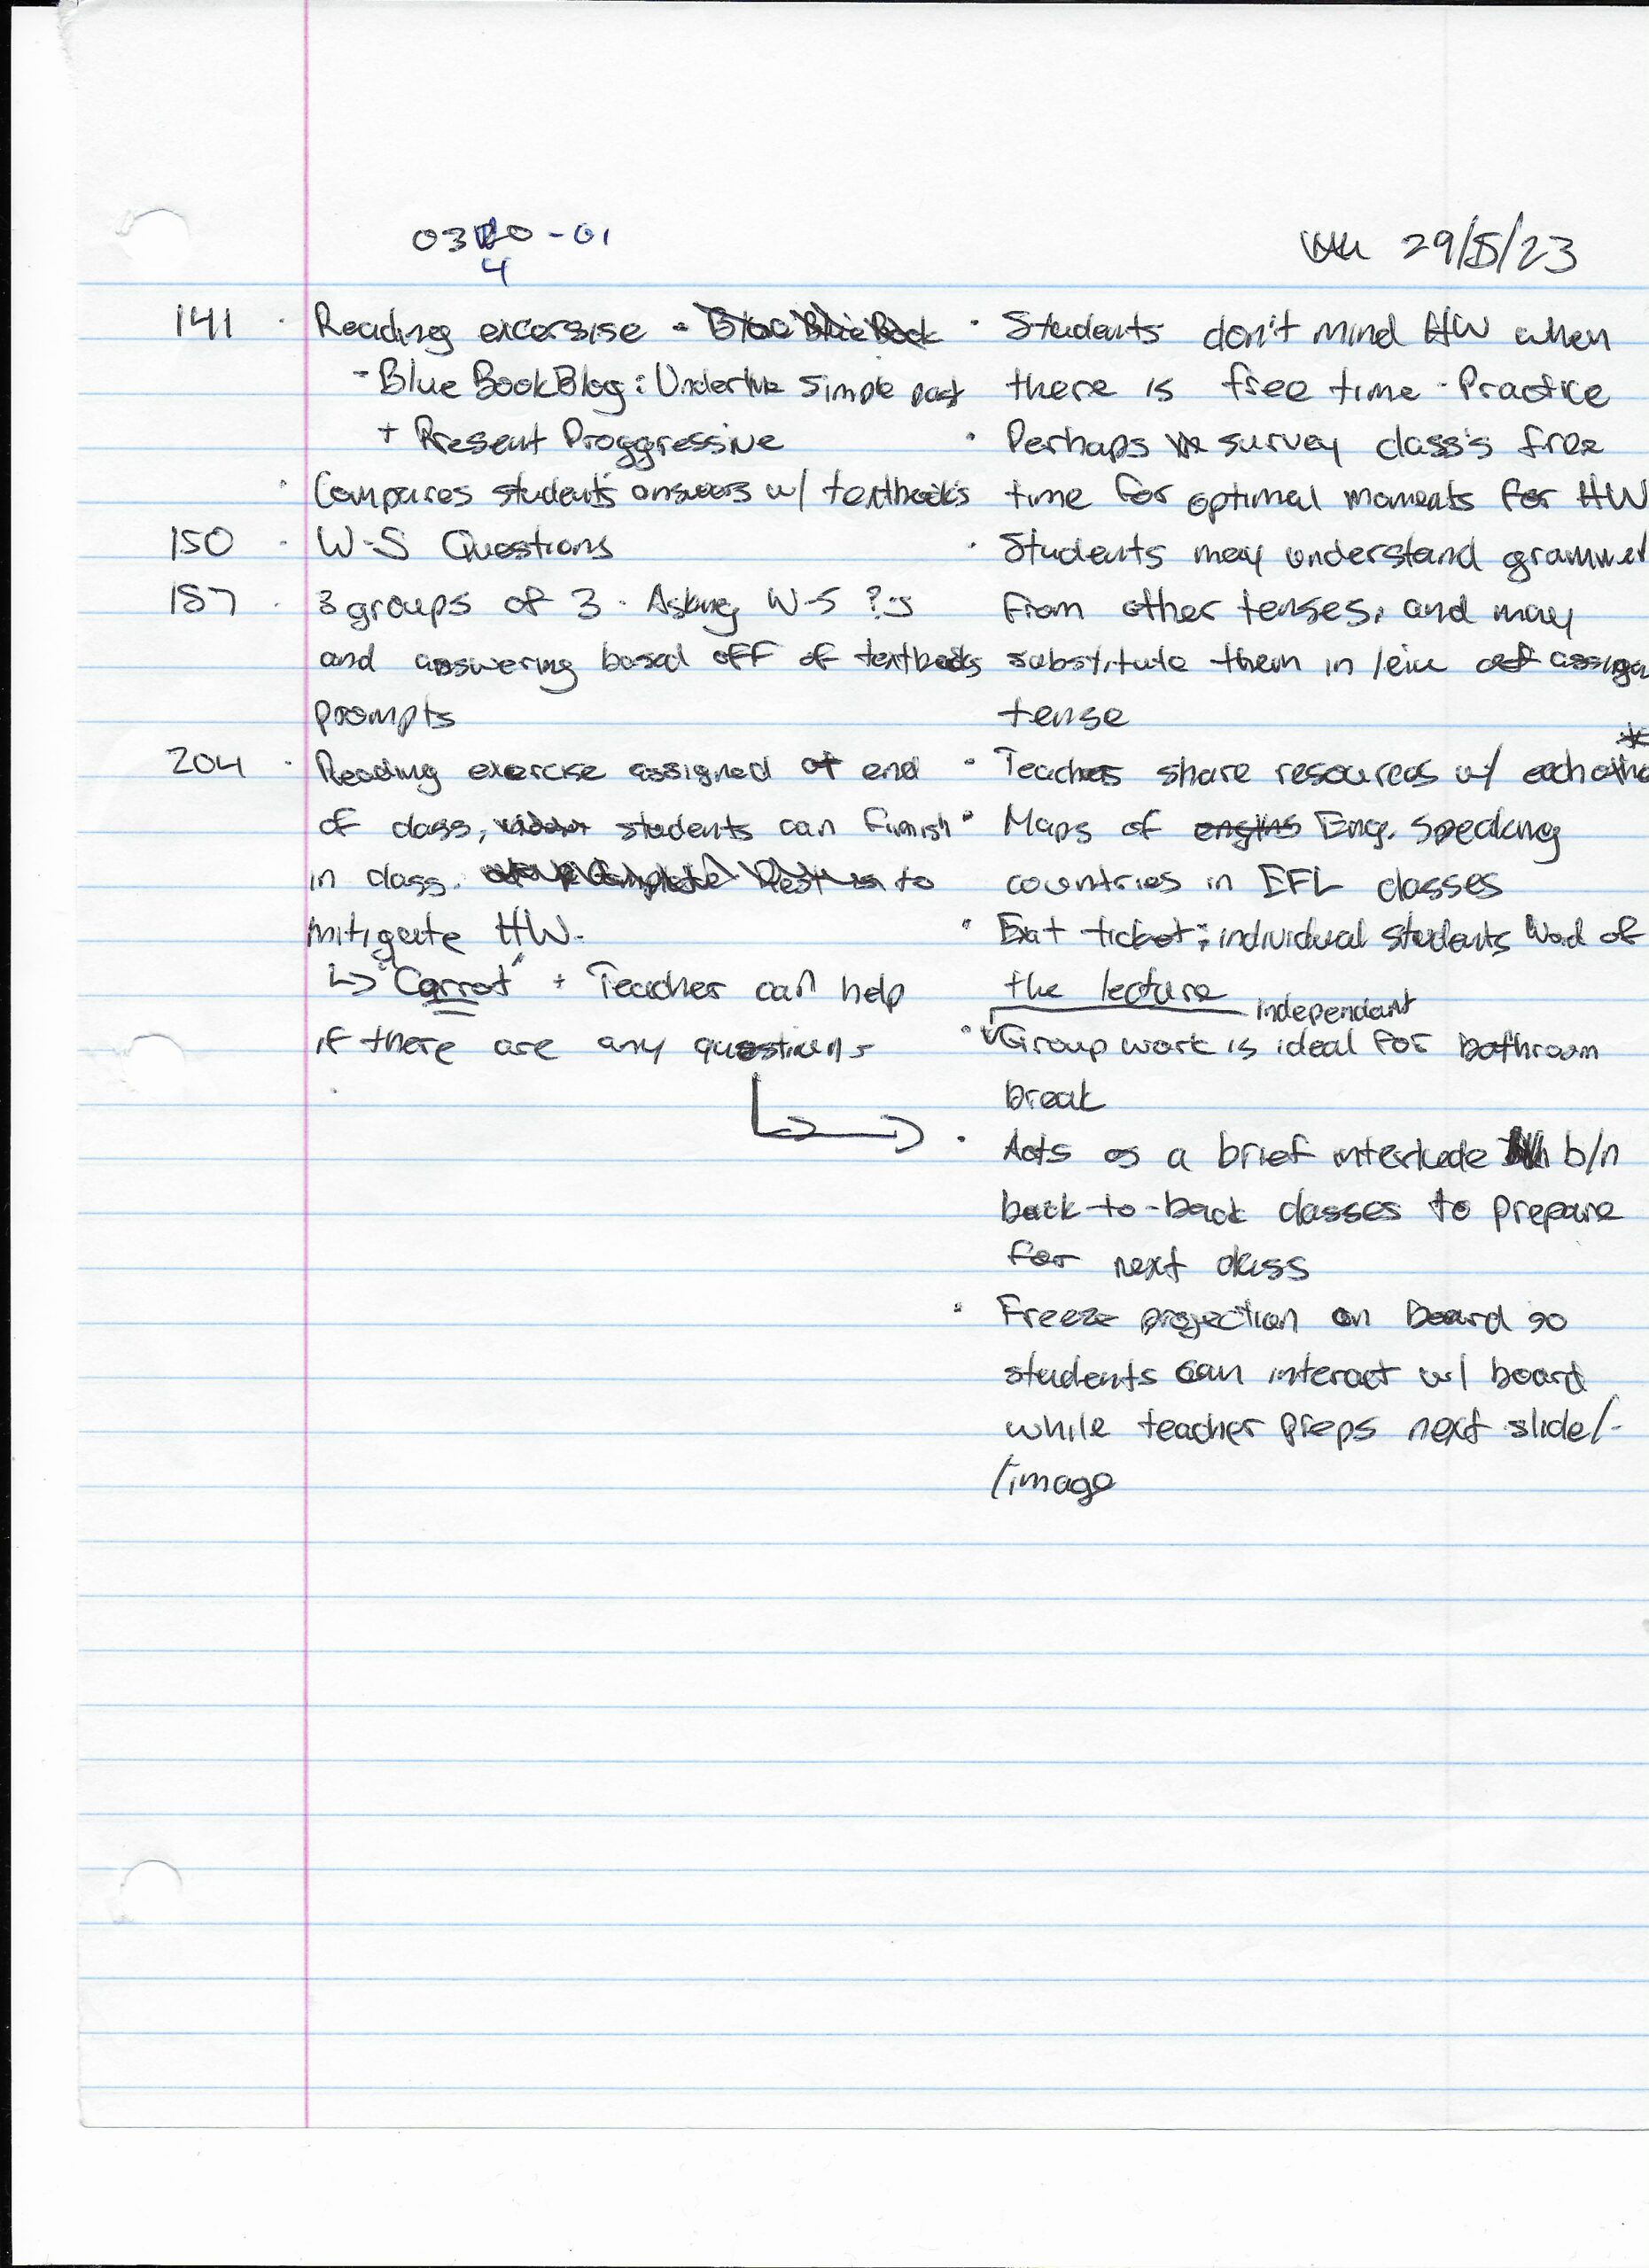 0340-01
29/5/23
141 · Reading excersise -
- Blue Book Blog: Underline Simple past
+ Present Proggressive
· Compares students' answers w/ textbook's
150 · W-S Questions
157 · 3 groups of 3. Asking W-S ?s
and answering based off of textbooks
prompts
204 · Reading exercise assigned at end
of class, students can finish
in class. to
mitigate HW.
↳ "Carrot" + Teacher can help
if there are any questions
· Students don't mind HW when
there is free time - Practice
· Perhaps survey class's free
time for optimal moments for HW
· Students may understand grammar
from other tenses, and may
substitute them in leiu of
tense
· Teachers share resources w/ each
· Maps of Eng. speaking
countries in EFL classes
· Exit ticket; individual students of
the lecture
independant
· Group work is ideal for bathroom
break
· Acts as a brief interlude b/n
back-to-back classes to prepare
for next class
· Freeze projection on board so
students can interact w/ board
while teacher preps next slide/-
/image